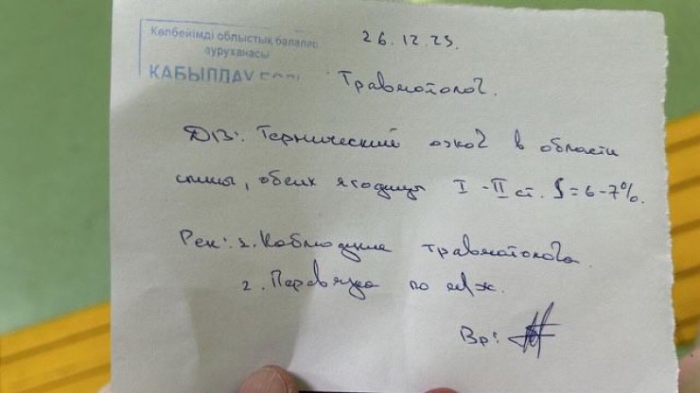 Көпбейінді облыстық балалар
ауруханасы
ҚАБЫЛДАУ
26.12.25.
Травматолог.
DB: Термический ожог в области
спины, обеих ягодиц I-II ст. S=6-7%.
Рек: 1. Наблюдение травматолога.
2. Перевязка по м/ж.
Вр: